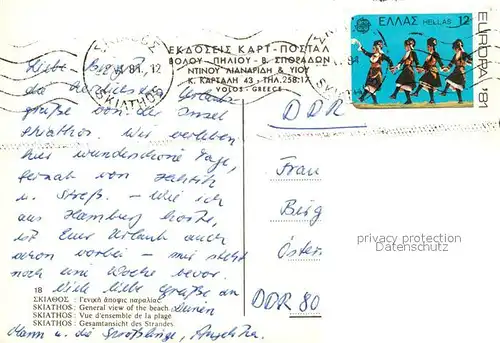 ΕΚΔΟΣΕΙΣ ΚΑΡΤ-ΠΟΣΤΑΛ
ΒΟΛΟΥ - ΠΗΛΙΟΥ - Β. ΣΠΟΡΑΔΩΝ
ΝΤΙΝΟΥ ΛΙΑΝΑΡΙΔΗ & ΥΙΟΥ
Κ. ΚΑΡΤΑΛΗ 43 - ΤΗΛ. 258-17
VOLOS - GREECE
ΕΛΛΑΣ HELLAS 12
EUROPA '81
SKIATHOS
81. 12
Liebe
die herzliesten Urlaubs-
grüße von der Insel
Skiathos. Wir verleben
hier wunderschöne Tage,
fernab von Hektik
u. Streß. - Wie ich
aus Hamburg hörte,
ist Euer Urlaub auch
schon vorbei - mir steht
noch eine Woche bevor.
Viele liebe Grüße an
Deinen
Mann u. die Sprößlinge,
DDR
Frau
Birg
Öster
DDR 80
privacy protection
Datenschutz
18
ΣΚΙΑΘΟΣ : Γενική άποψις παραλίας
SKIATHOS : General view of the beach
SKIATHOS : Vue d'ensemble de la plage
SKIATHOS : Gesamtansicht des Strandes